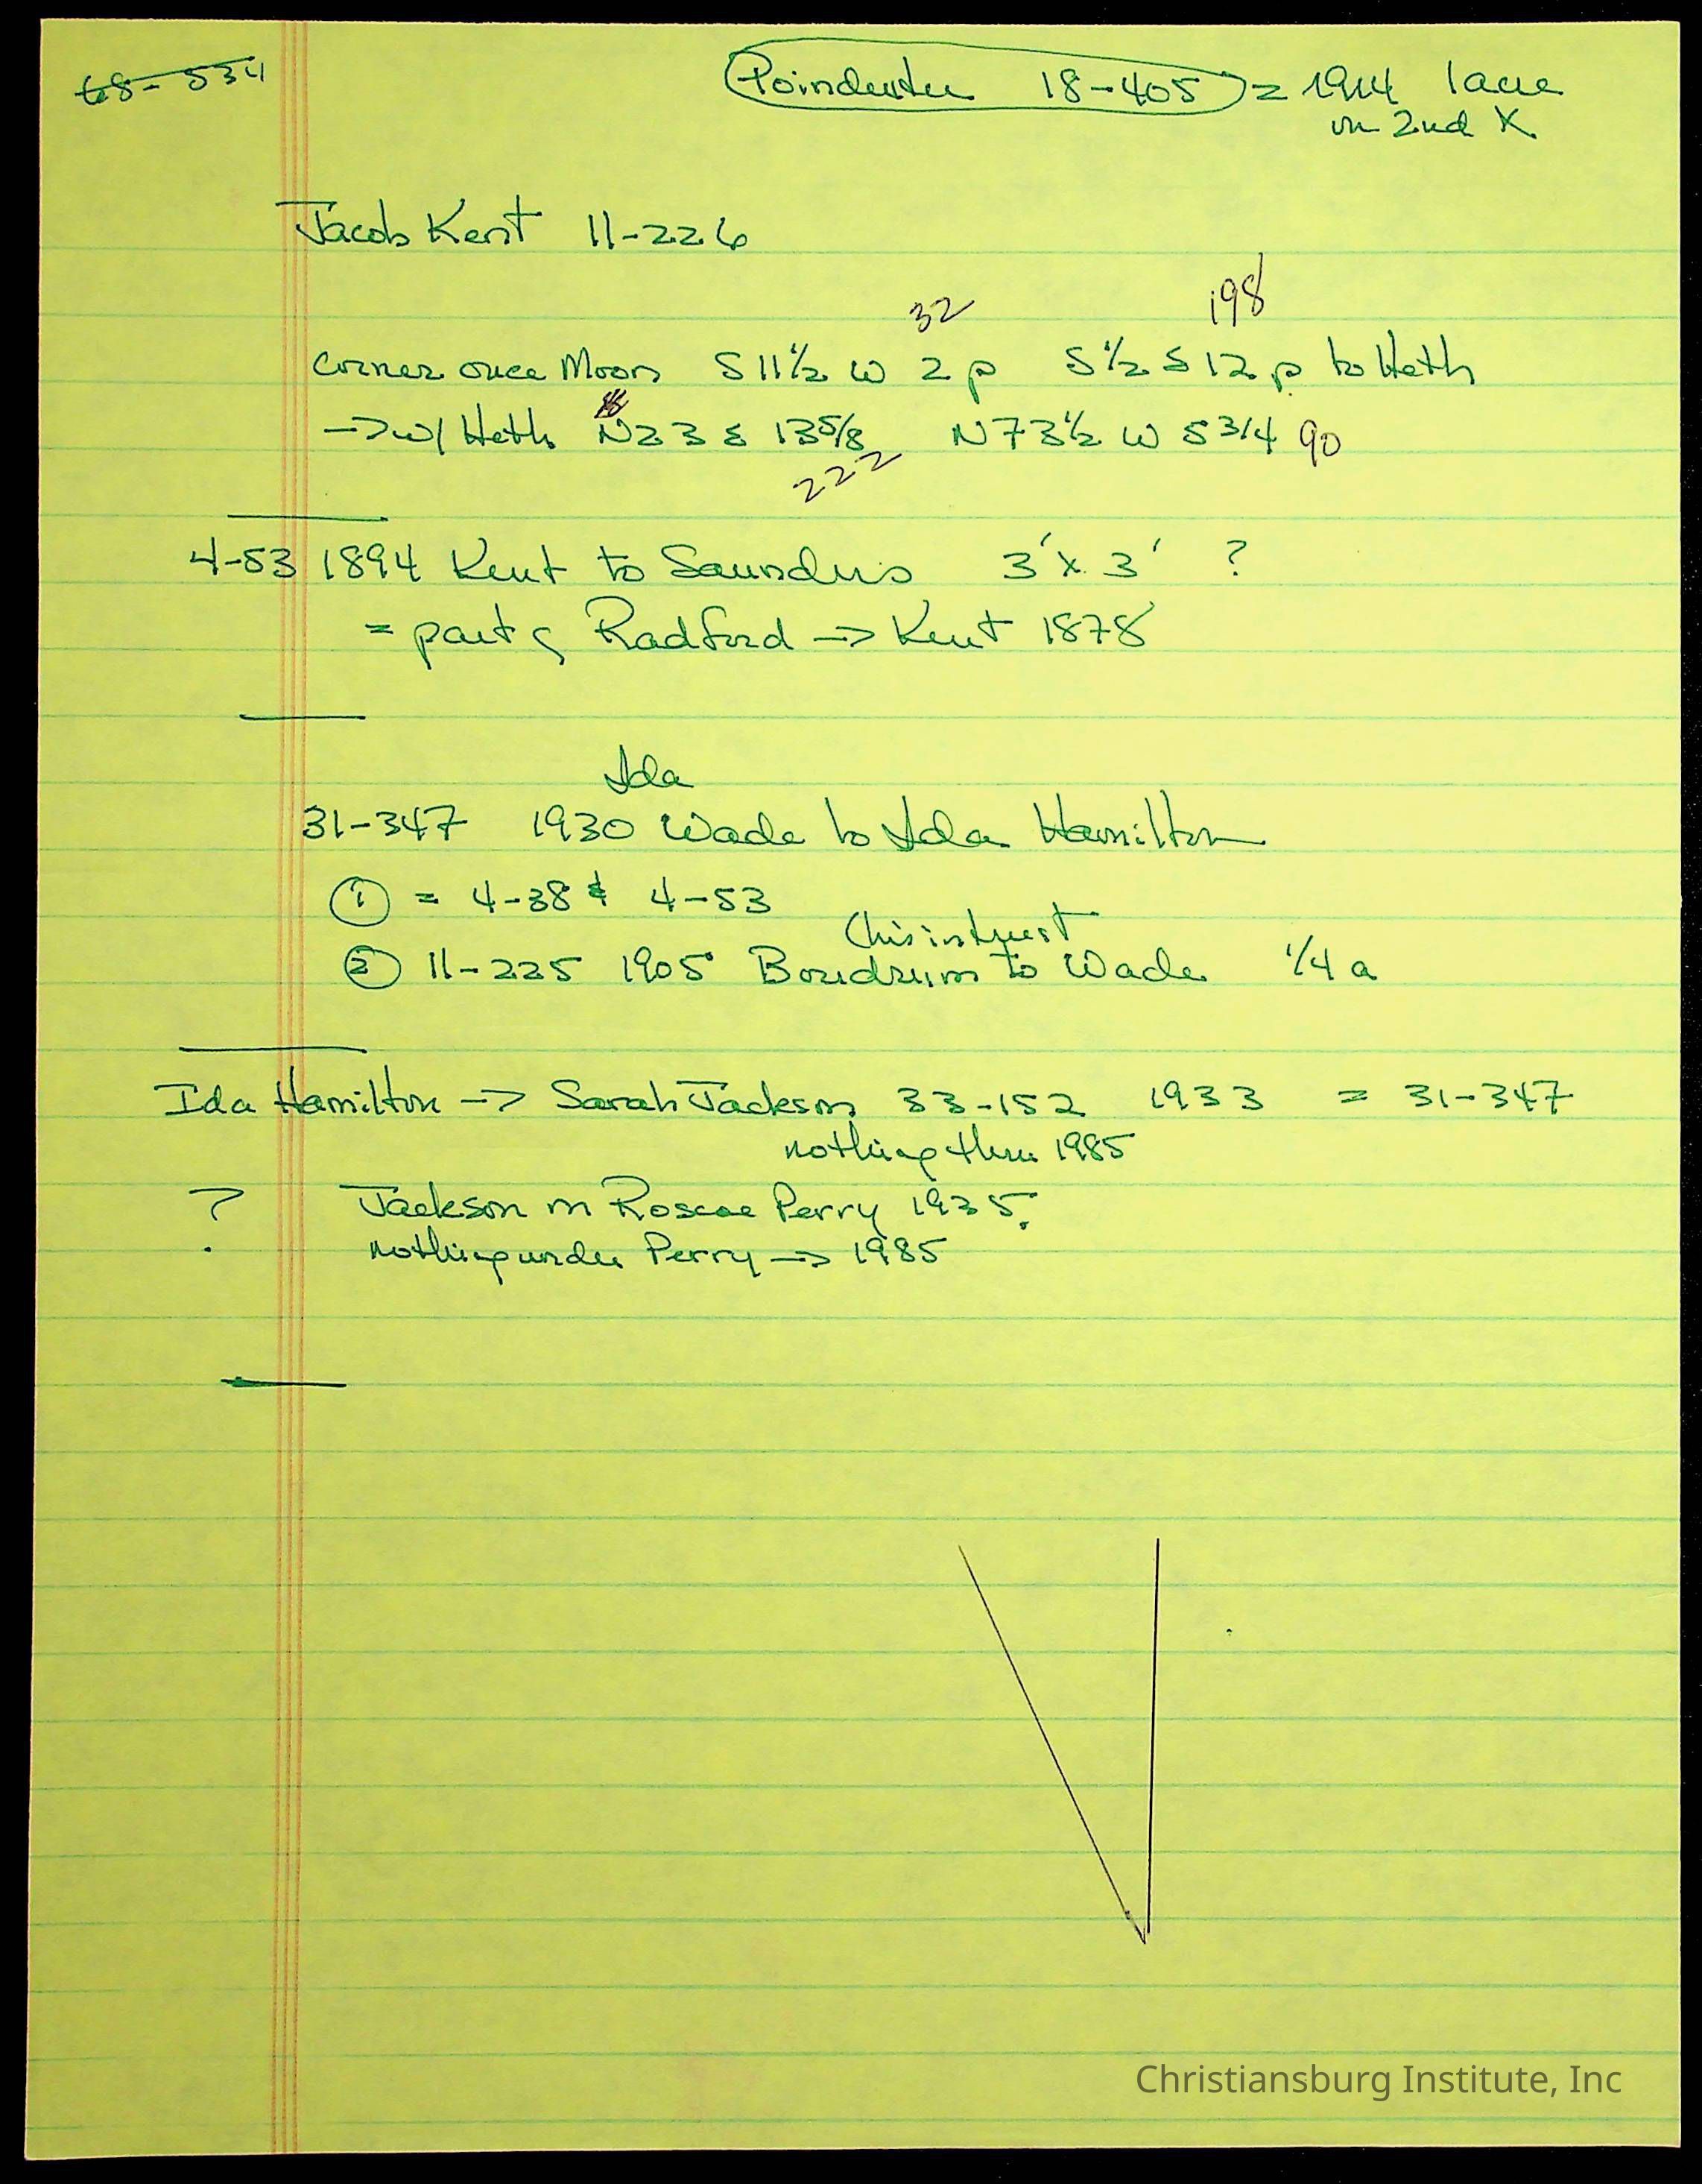 68-534
Poindexter 18-405 = 1914 1 acre
on 2nd X
Jacob Kent 11-226
32 198
corner once Moon S 11 1/2 W 2 p S 1/2 E 12 p to Heth
→ w/ Heth N 23 E 13 5/8 N 73 1/2 W 5 3/4 90
222
4-53 1894 Kent to Saunders 3' x 3' ?
= part of Radford → Kent 1878
Ida
31-347 1930 Wade to Ida Hamilton
① = 4-38 & 4-53
(his interest
② 11-225 1905 Boudrum to Wade 1/4 a
Ida Hamilton → Sarah Jackson 33-152 1933 = 31-347
nothing thru 1985
? Jackson m Roscoe Perry 1935?
nothing under Perry → 1985
Christiansburg Institute, Inc